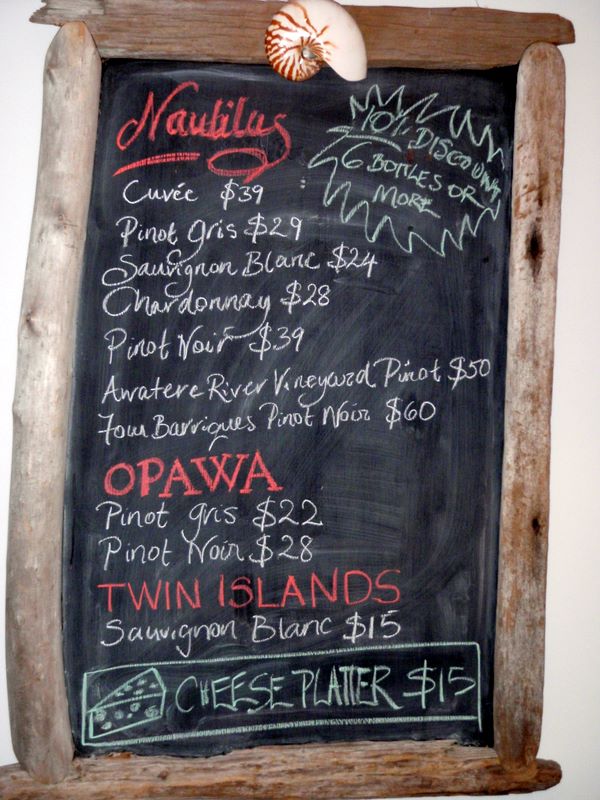 Nautilus
10% DISCOUNT
6 BOTTLES OR
MORE
Cuvée $39
Pinot Gris $29
Sauvignon Blanc $24
Chardonnay $28
Pinot Noir $39
Awatere River Vineyard Pinot $50
Four Barriques Pinot Noir $60
OPAWA
Pinot gris $22
Pinot Noir $28
TWIN ISLANDS
Sauvignon Blanc $15
CHEESE PLATTER $15